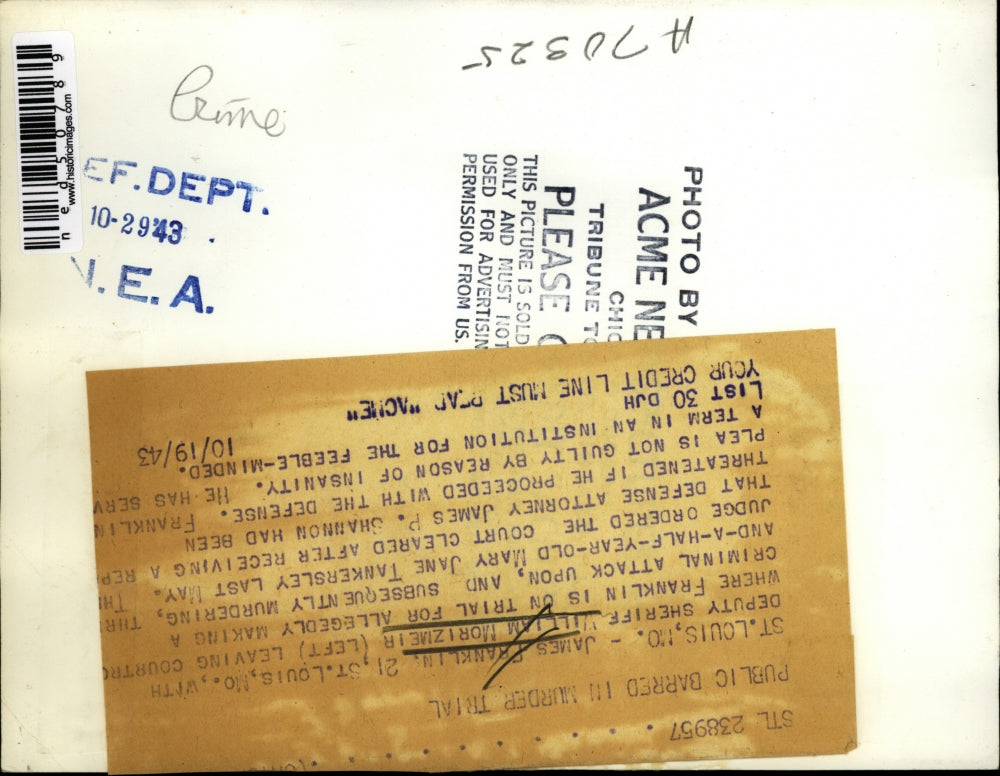 A 70325
Crime
EF. DEPT.
10-29 '43
N.E.A.
ned56789
www.historicimages.com
PHOTO BY
ACME NE
CHIC
TRIBUNE TO
PLEASE C
THIS PICTURE IS SOLD
ONLY AND MUST NOT
USED FOR ADVERTISIN
PERMISSION FROM US.
STL 238957
PUBLIC BARRED IN MURDER TRIAL
ST.LOUIS,MO. - JAMES FRANKLIN, 21, ST.LOUIS,MO., WITH
DEPUTY SHERIFF WILLIAM MORIZMEIR (LEFT) LEAVING COURTRO
WHERE FRANKLIN IS ON TRIAL FOR ALLEGEDLY MAKING A
CRIMINAL ATTACK UPON, AND SUBSEQUENTLY MURDERING, THR
AND-A-HALF-YEAR-OLD MARY JANE TANKERSLEY LAST MAY. TH
JUDGE ORDERED THE COURT CLEARED AFTER RECEIVING A REP
THAT DEFENSE ATTORNEY JAMES P. SHANNON HAD BEEN
THREATENED IF HE PROCEEDED WITH THE DEFENSE. FRANKLIN
PLEA IS NOT GUILTY BY REASON OF INSANITY. HE HAS SERV
A TERM IN AN INSTITUTION FOR THE FEEBLE-MINDED.
LIST 30 DJH 10/19/43
YOUR CREDIT LINE MUST READ "ACME"